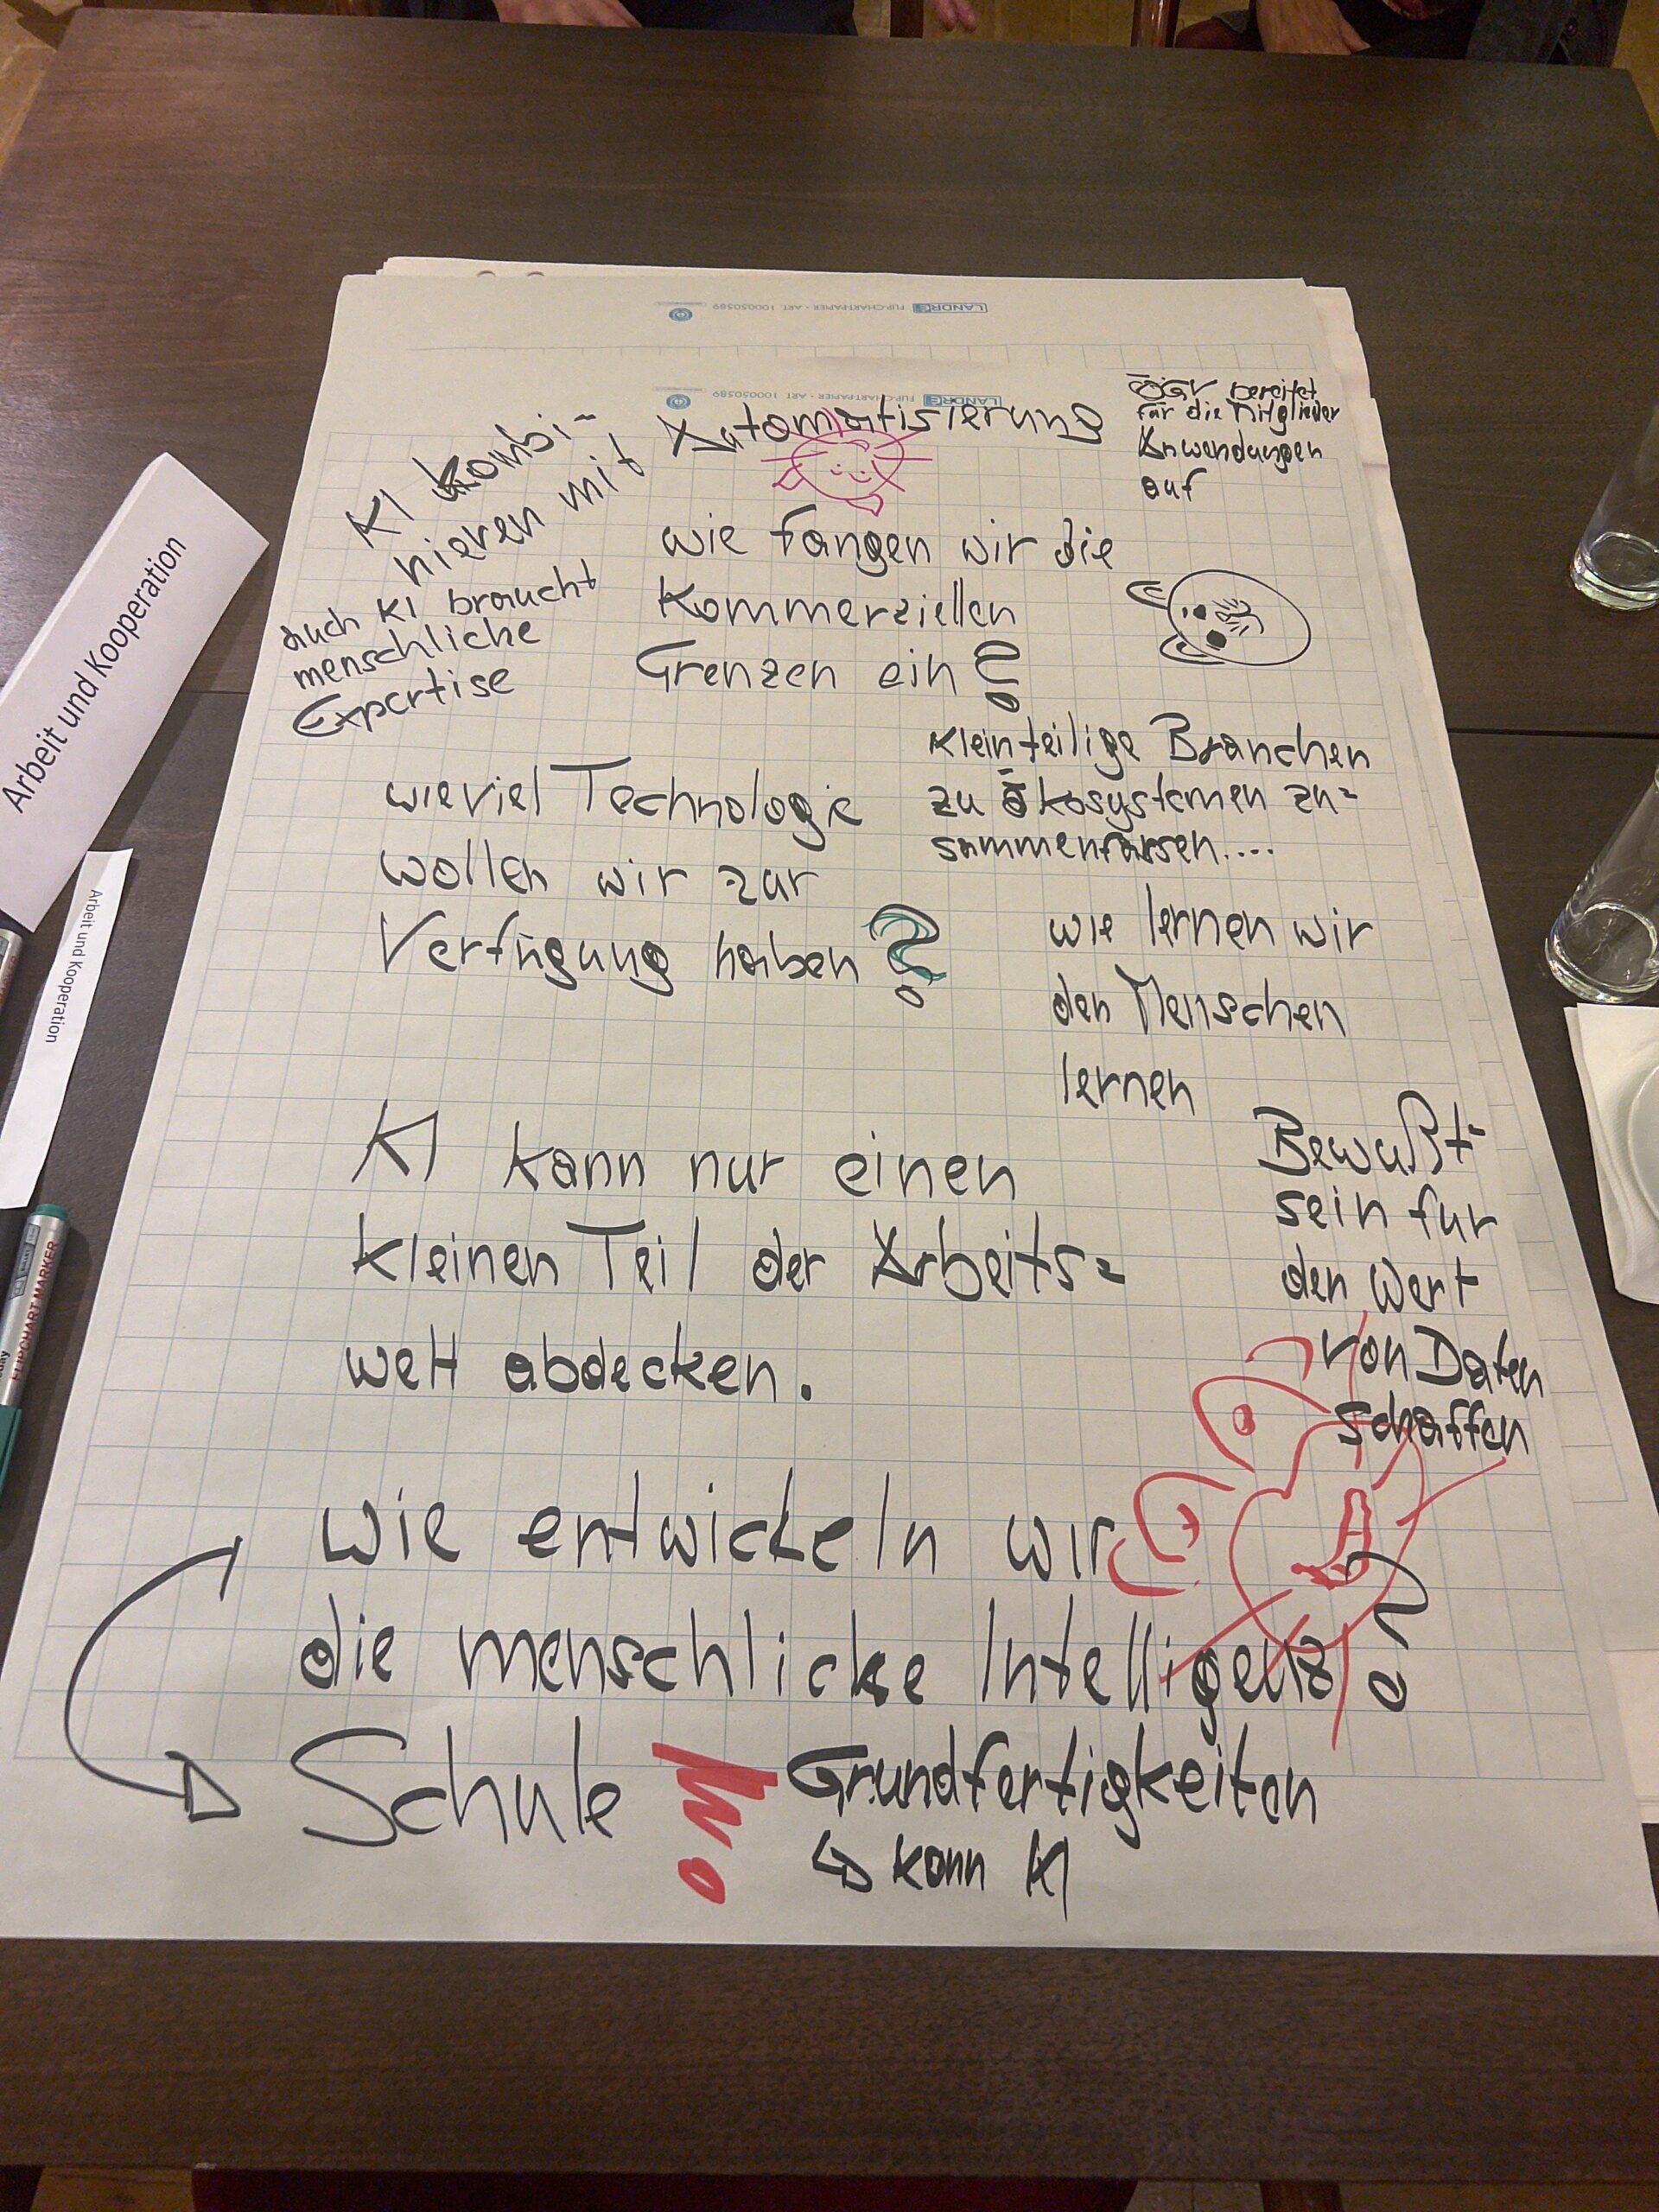 LANDRÉ FLIP-CHARTPAPIER - ART. 100050589
LANDRÉ FLIP-CHARTPAPIER - ART. 100050589
KI kombi-
nieren mit
Automatisierung
ÖGV bereitet
für die Mitglieder
Anwendungen
auf
auch KI braucht
menschliche
Expertise
wie fangen wir die
Kommerziellen
Grenzen ein?
Kleinteilige Branchen
zu Ökosystemen zu=
sammenfassen....
wieviel Technologie
wollen wir zur
Verfügung haben?
wie lernen wir
den Menschen
lernen
KI kann nur einen
kleinen Teil der Arbeits=
welt abdecken.
Bewußt-
sein für
den Wert
von Daten
schaffen
wie entwickeln wir
die menschliche Intelligenz?
Schule
Grundfertigkeiten
↳ kann KI
Arbeit und Kooperation
Arbeit und Kooperation
FLIPCHART MARKER